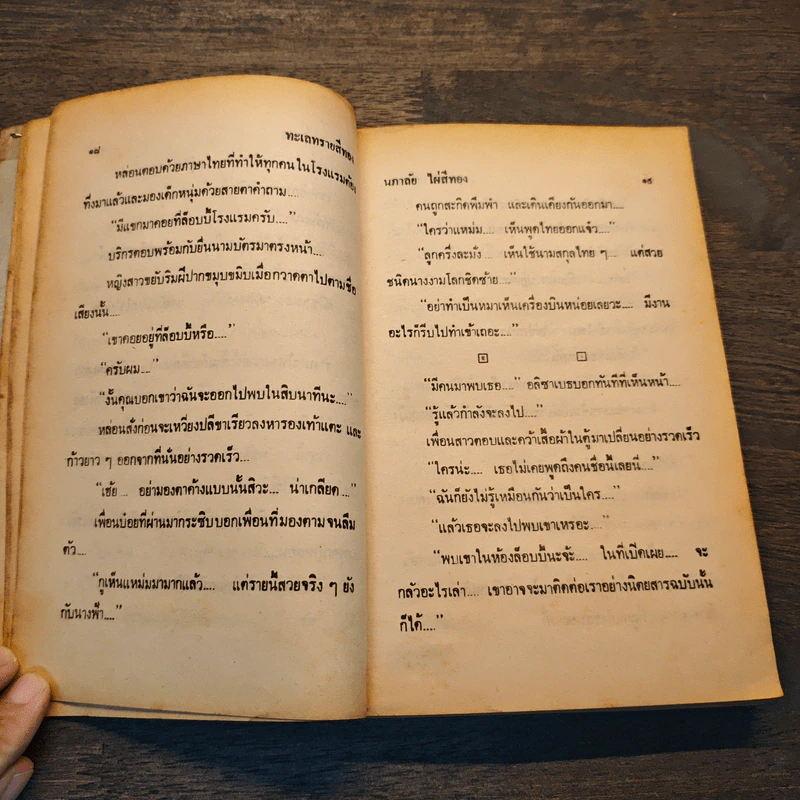 ๑๘
ทะเลทรายสีทอง
หล่อนตอบด้วยภาษาไทยที่ทำให้ทุกคนในโรงแรมต้อง
ทึ่งมาแล้วและมองเด็กหนุ่มด้วยสายตาคำถาม....
“มีแขกมาคอยที่ล็อบบี้โรงแรมครับ....”
บริกรตอบพร้อมกับยื่นนามบัตรมาตรงหน้า....
หญิงสาวขยับริมฝีปากขมุบขมิบเมื่อกวาดตาไปตามชื่อ
เสียงนั้น....
“เขาคอยอยู่ที่ล็อบบี้หรือ....”
“ครับผม....”
“งั้นคุณบอกเขาว่าฉันจะออกไปพบในสิบนาทีนะ....”
หล่อนสั่งก่อนจะเหวี่ยงปลีขาเรียวลงหารองเท้าแตะ และ
ก้าวยาว ๆ ออกจากที่นั่นอย่างรวดเร็ว....
“เฮ้ย.... อย่ามองตาค้างแบบนั้นสิวะ.... น่าเกลียด....”
เพื่อนบ๋อยที่ผ่านมากระซิบบอกเพื่อนที่มองตามจนลืม
ตัว....
“กูเห็นแหม่มมามากแล้ว.... แต่รายนี้สวยจริง ๆ ยัง
กับนางฟ้า....”
นภาลัย ไผ่สีทอง
๑๙
คนถูกสะกิดพึมพำ และเดินเคียงกันออกมา....
“ใครว่าแหม่ม.... เห็นพูดไทยออกแจ๋ว....”
“ลูกครึ่งละมั้ง.... เห็นใช้นามสกุลไทย ๆ.... แต่สวย
ชนิดนางงามโลกชิดซ้าย....”
“อย่าทำเป็นหมาเห็นเครื่องบินหน่อยเลยวะ.... มีงาน
อะไรก็รีบไปทำเข้าเถอะ....”
“มีคนมาพบเธอ....” อลิซาเบธบอกทันทีที่เห็นหน้า....
“รู้แล้วกำลังจะลงไป....”
เพื่อนสาวตอบและคว้าเสื้อผ้าในตู้มาเปลี่ยนอย่างรวดเร็ว
“ใครน่ะ.... เธอไม่เคยพูดถึงคนชื่อนี้เลยนี่....”
“ฉันก็ยังไม่รู้เหมือนกันว่าเป็นใคร....”
“แล้วเธอจะลงไปพบเขาเหรอะ....”
“พบเขาในห้องล็อบบี้นะจ้ะ.... ในที่เปิดเผย.... จะ
กลัวอะไรเล่า.... เขาอาจจะมาติดต่อเราอย่างนิตยสารฉบับนั้น
ก็ได้....”